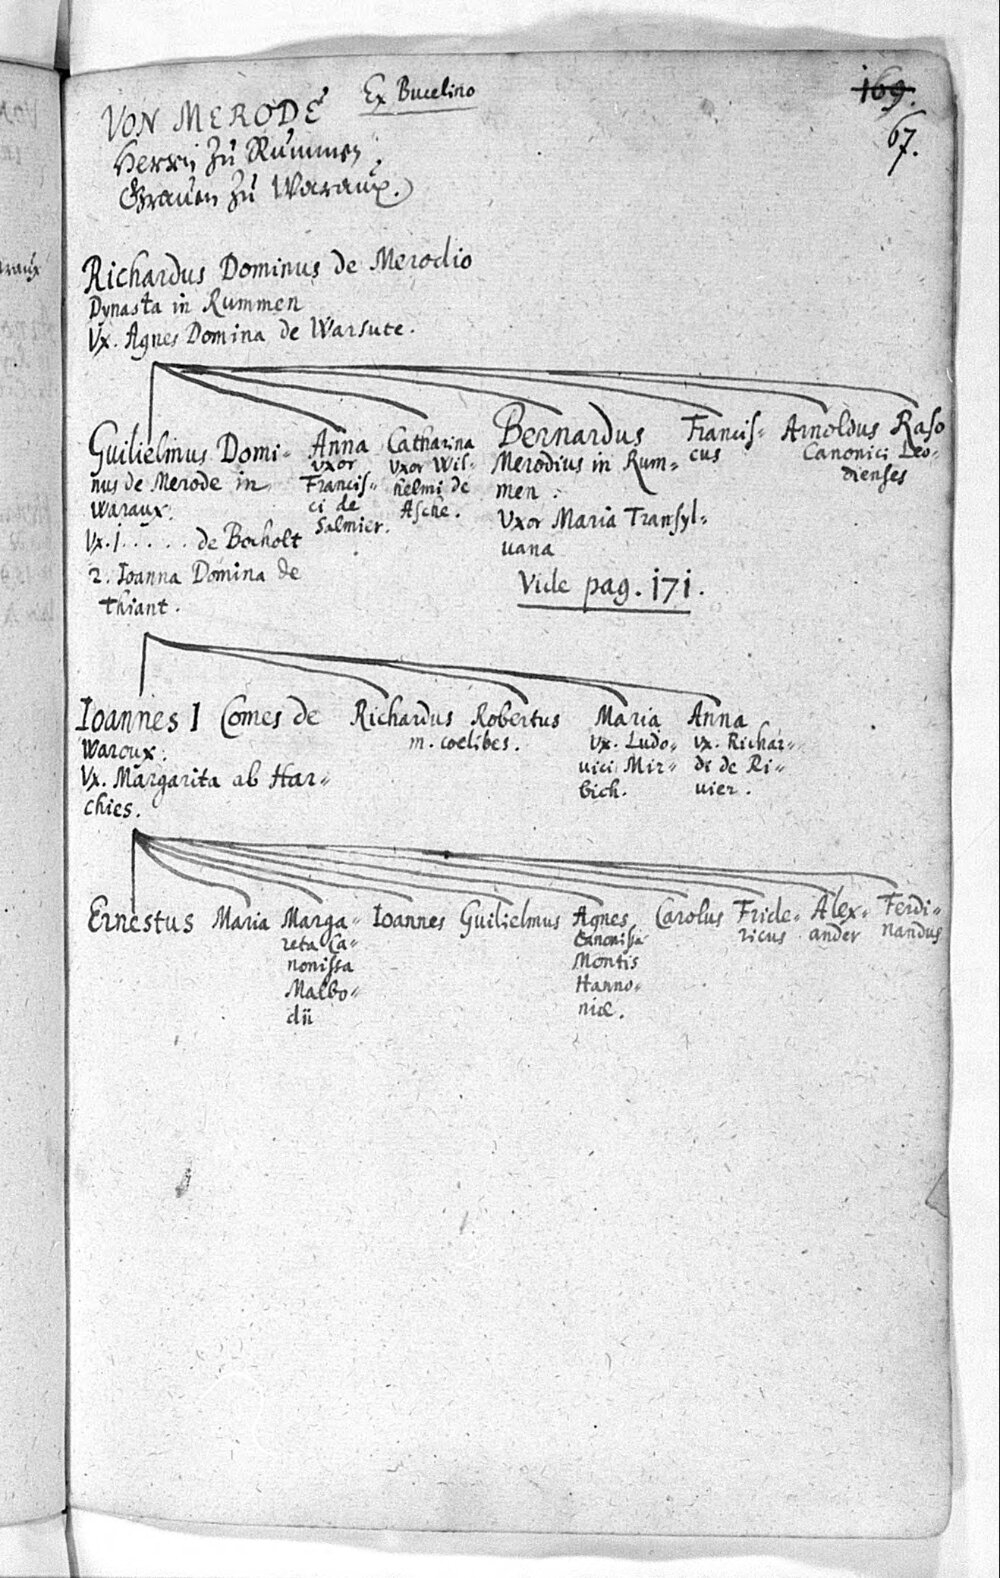 Ex Bucelino
169.
67.
VON MERODE
Herrn Zu Rummen
Grauen Zu Waraux.
Richardus Dominus de Merodio
Dynasta in Rummen
Vx. Agnes Domina de Warsute.
Guilielmus Domi=
nus de Merode in
Waraux.
Vx. 1 . . . . . de Bocholt
2. Ioanna Domina de
Thiant.
Anna
vxor
Francis=
ci de
Salmier.
Catharina
Vxor Wil=
helmi de
Asche.
Bernardus
Merodius in Rum=
men.
Vxor Maria Transyl=
uana
Vide pag. 171.
Francis=
cus
Arnoldus Raso
Canonici Leo=
dienses
Ioannes I Comes de
Waroux.
Vx. Margarita ab Har=
chies.
Richardus Robertus
m. coelibes.
Maria
vx. Ludo=
uici Mir=
bich.
Anna
vx. Richar=
di de Ri=
uier.
Ernestus
Maria
Marga=
reta Ca=
nonissa
Malbo=
dii
Ioannes
Guilielmus
Agnes
Canonissa
Montis
Hanno=
niæ.
Carolus
Fride=
ricus
Alex=
ander
Ferdi=
nandus